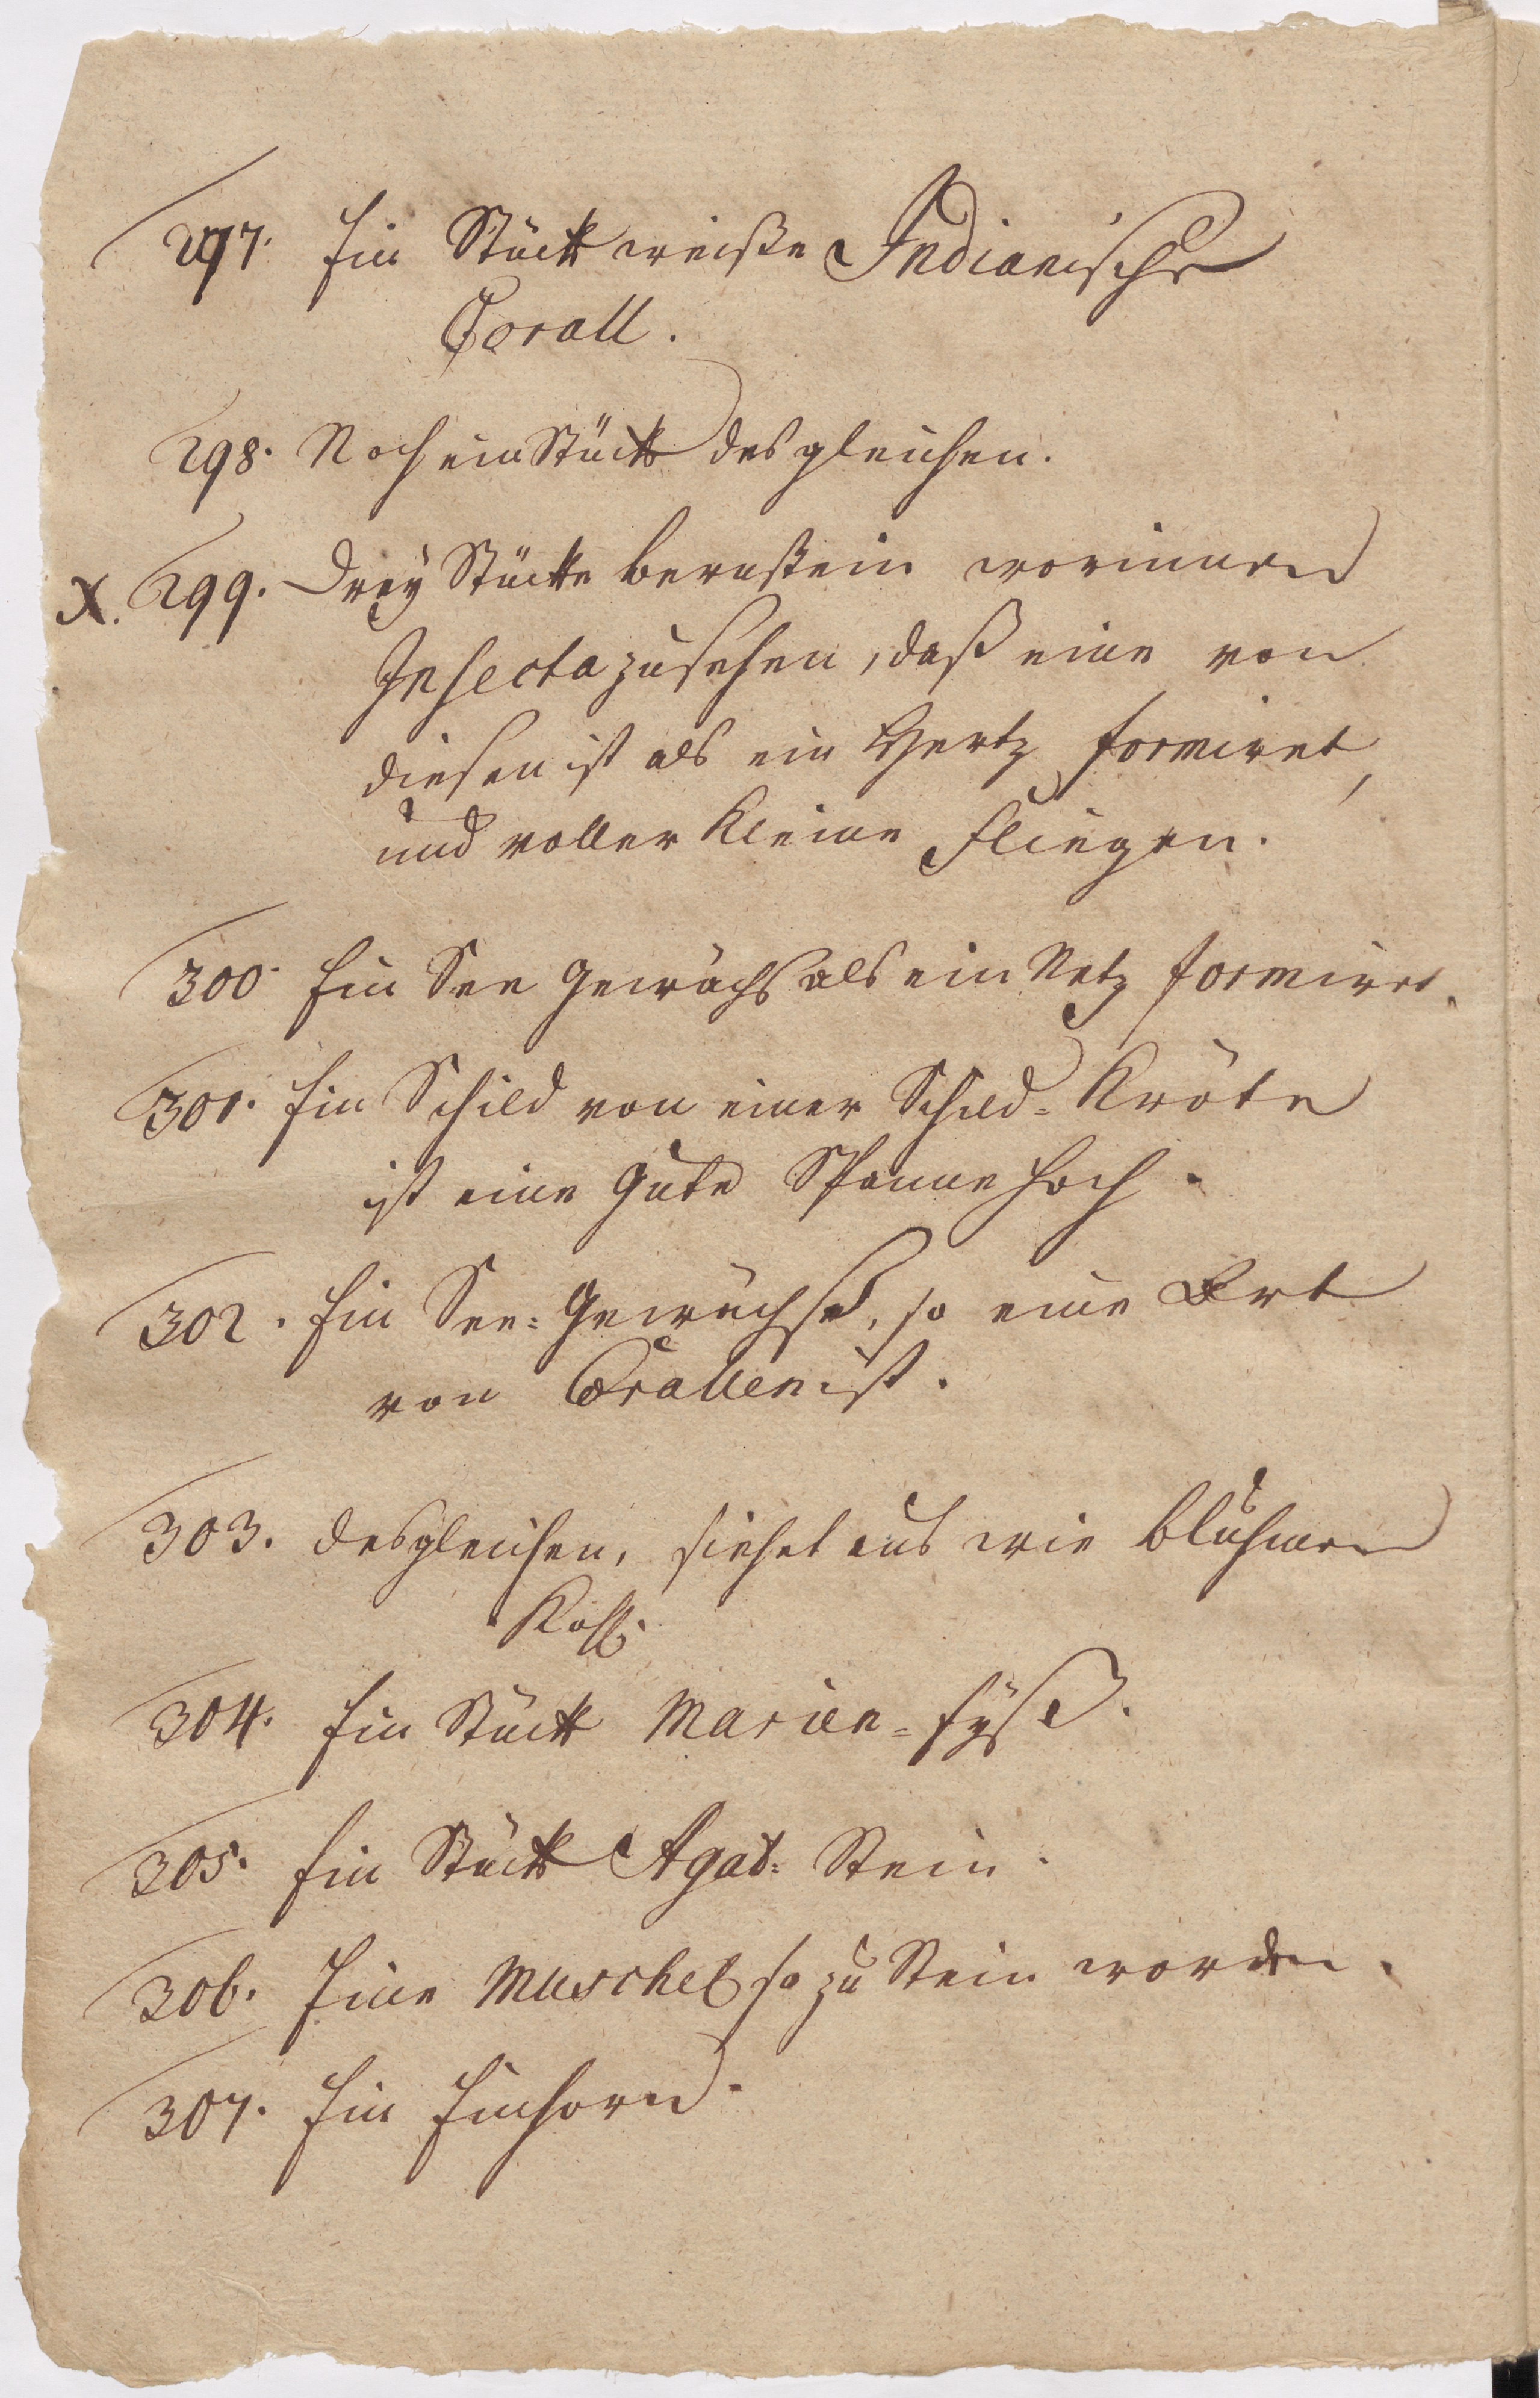 297. Ein Stück weiße Indianische
Corall.
298. Noch ein Stück desgleichen.
X. 299. Drey Stücke bernstein worinnen
Insecta zusehen, daß eine von
diesen ist als ein Hertz formiret,
und voller kleine Fliegen.
300. Ein See Gewächs als ein Netz formiret.
301. Ein Schild von einer Schild-Kröte
ist eine gute Spanne hoch.
302. Ein See-Gewächse, so eine Art
von Corallen ist.
303. desgleichen, siehet aus wie bluhmen
Kohl.
304. Ein Stück Marien-
305. Ein Stück Agat-Stein.
306. Eine Muschel so zu Stein worden.
307. Ein Einhorn.